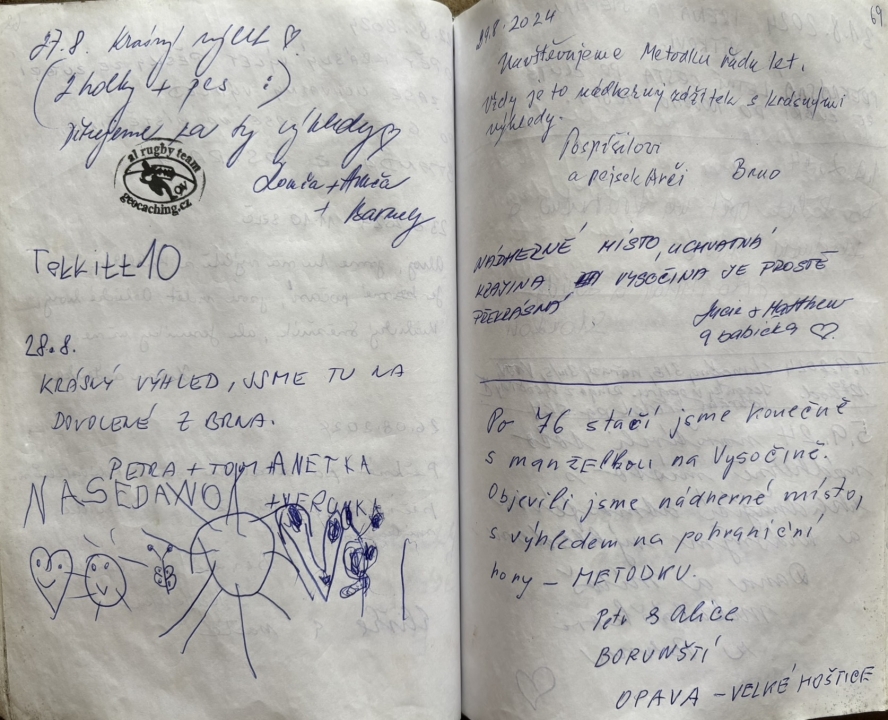 27.8. Krásný výlet ♡
(2 holky + pes :)
Děkujeme za ty výhledy ♡
Lomča + Amča
+ Barney
al rugby team
geocaching.cz
Tekkitt10
28.8.
KRÁSNÝ VÝHLED, JSME TU NA
DOVOLENÉ Z BRNA.
PETRA + TOM + ANETKA
+ VERUNKA
69
29.8.2024
Navštěvujeme Metodku řadu let.
Vždy je to nádherný zážitek s krásnými
výhledy.
Pospíšilovi
a pejsek Arči Brno
NÁDHERNÉ MÍSTO, UCHVATNÁ
KRAJINA VYSOČINA JE PROSTĚ
PŘEKRÁSNÁ
Lucie + Matthew
a babička ♡.
Po 76 stáčí jsme konečně
s manželkou na Vysočině.
Objevili jsme nádherné místo,
s výhledem na pohraniční
hory – METODKU.
Petr & Alice
BORUNŠTÍ
OPAVA – VELKÉ HOŠTICE